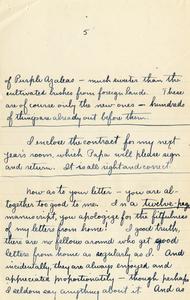 5
of Purple Azaleas — much sweeter than the
cultivated bushes from foreign lands. These
are of course only the new ones — hundreds
of things are already out before them.
I enclose the contract for my next
year's room, which Papa will please sign
and return. It is all right and correct.
Now as to your letter — you are al-
together too good to me. In a twelve page
manuscript, you apologize for the fitfulness
of my letters from home! Good truth,
there are no fellows around who get good
letters from home as regularly as I. And
incidentally, they are always enjoyed and
appreciated proportionately — though perhaps
I seldom say anything about it. And as